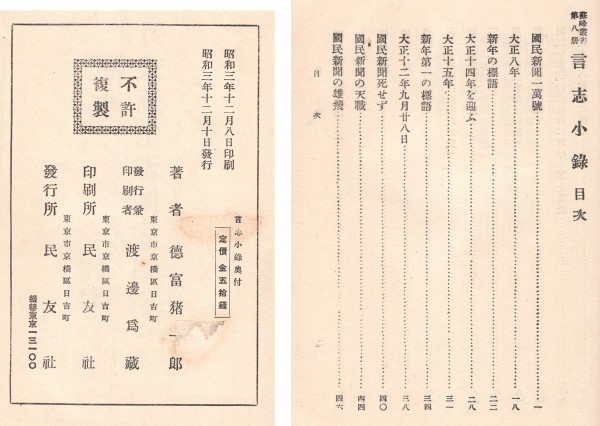 蘇峰叢書
第八册
言志小錄 目次
國民新聞一萬號 一
大正八年 一八
新年の標語 二二
大正十四年を迎ふ 二八
大正十五年 三一
新年第一の標語 三四
大正十二年九月廿八日 三八
國民新聞死せず 四〇
國民新聞の天職 四四
國民新聞の雄飛 四六
目次
言志小錄奧付
定價金五拾錢
著者 德富猪一郎
東京市京橋區日吉町
發行兼
印刷者 渡邊爲藏
東京市京橋區日吉町
印刷所 民友社
東京市京橋區日吉町
發行所 民友社
振替東京一三一〇〇
昭和三年十二月八日印刷
昭和三年十二月十日發行
不許
複製